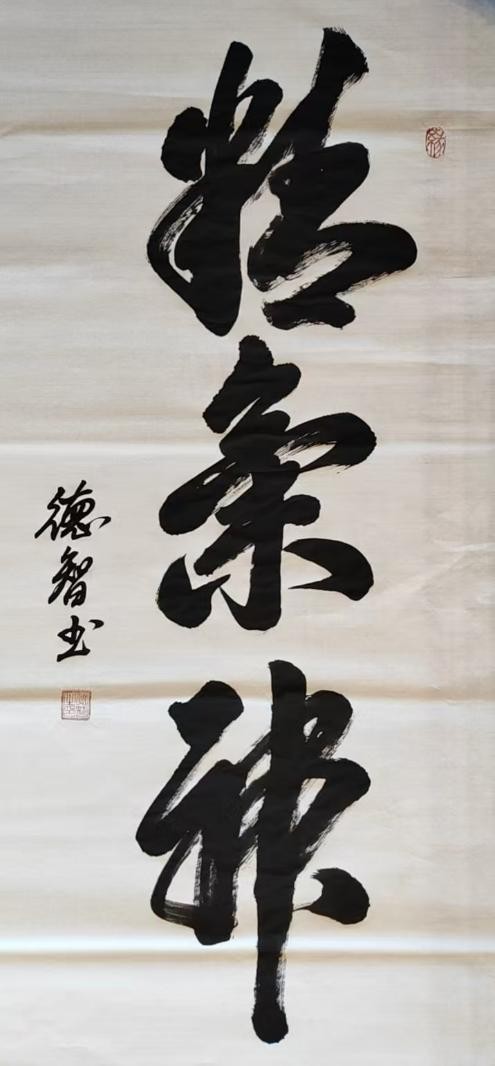 精氣神
德智书